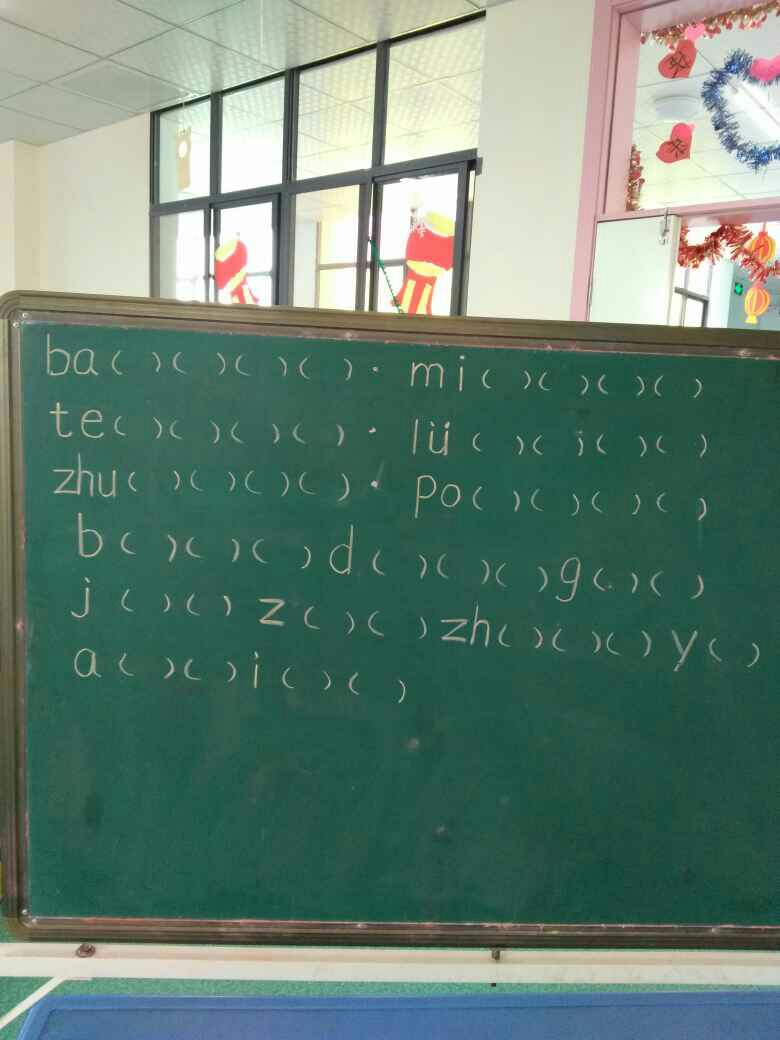 ba( )( )( )( ). mi( )( )( )( )
te( )( )( )( ). lü( )( )( )( )
zhu( )( )( )( ). po( )( )( )( )
b( )( )( )d( )( )( )g( )( )
j( )( )z( )( )zh( )( )( )y( )
a( )( )i( )( )